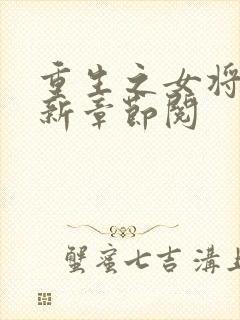 重生之女将
新章节阅
蟹蜜七吉沟上